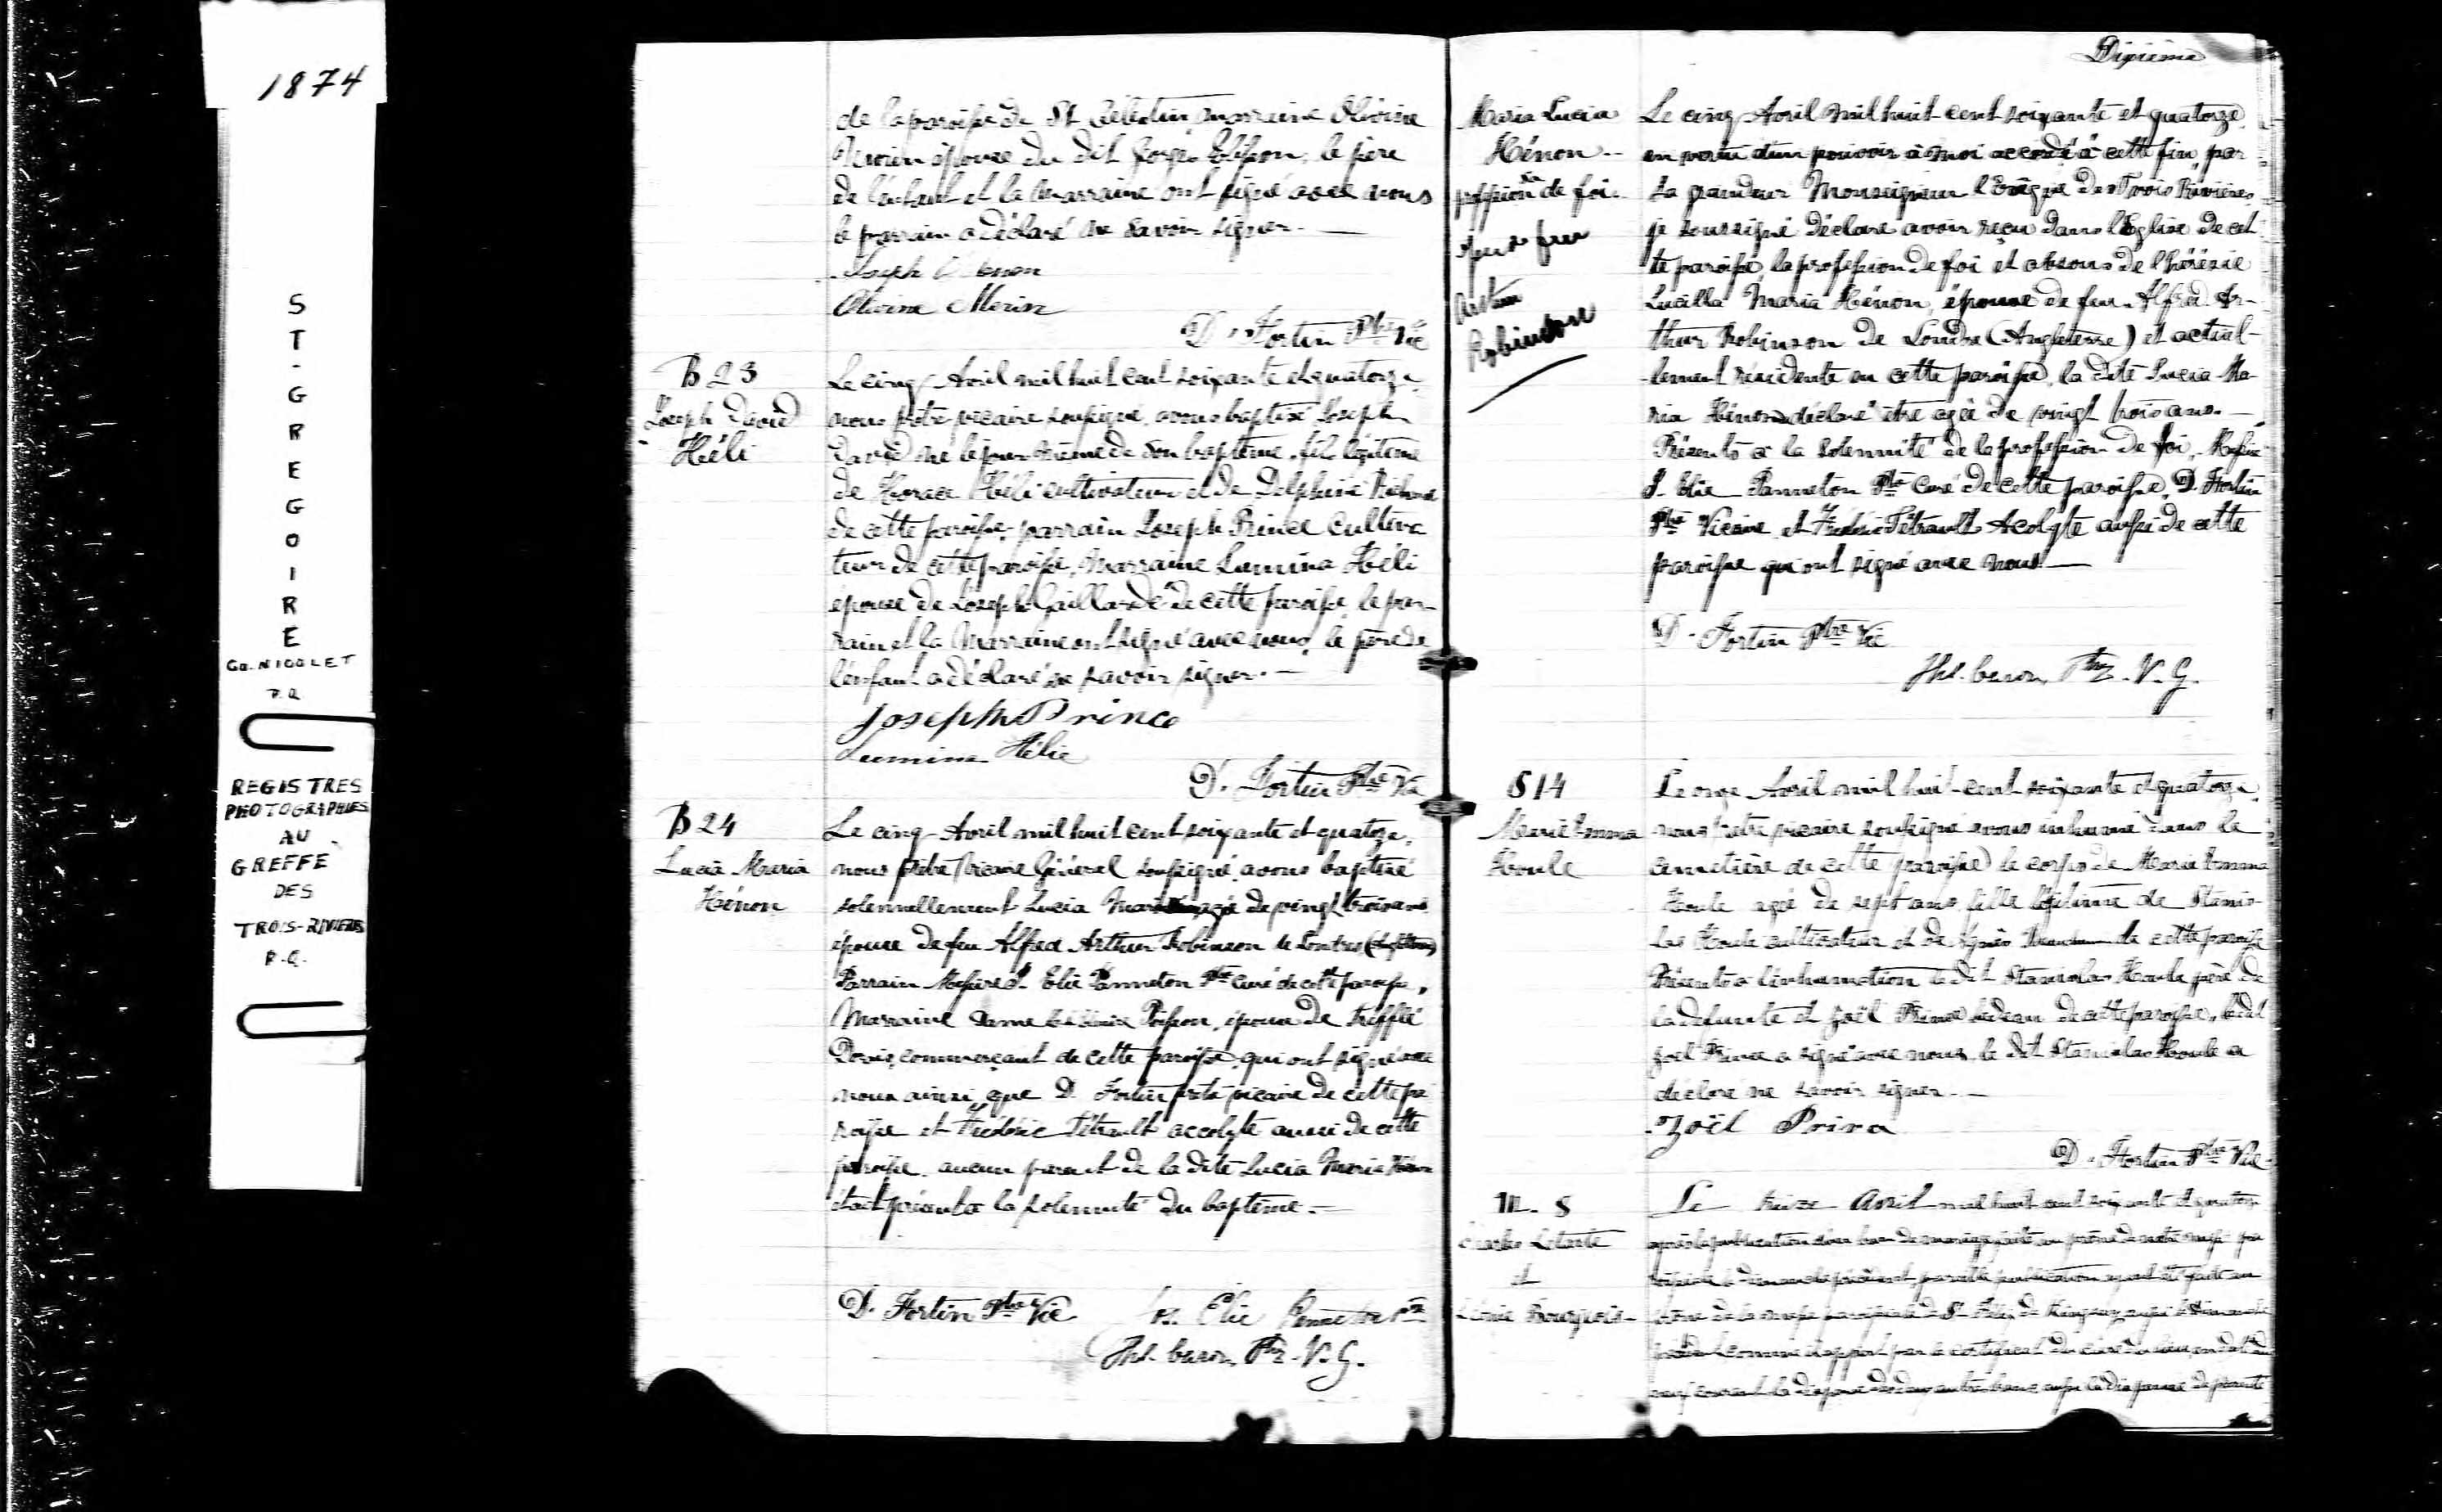 1874
ST-GREGOIRE
Co. NICOLET
P.Q.
REGISTRES
PHOTOGRAPHIES
AU
GREFFE
DES
TROIS-RIVIERES
P.Q.
de la paroisse de St Célestin, marraine Olivine
Morin épouse du dit le père
de l'enfant et la marraine ont signé avec nous
le parrain a déclaré ne savoir signer. —
Joseph
Olivine Morin
D. Fortin Ptre Vic
B 23
Joseph David
Héli
Le cinq Avril mil huit cent soixante et quatorze,
nous prêtre vicaire soussigné avons baptisé Joseph
David né le jour même de son baptême, fils légitime
de Horace Héli cultivateur et de Delphine
de cette paroisse, parrain Joseph Prince cultiva
teur de cette paroisse, Marraine Lumina Héli
épouse de Joseph Gaillardé de cette paroisse, le par-
rain et la Marraine ont signé avec nous, le père de
l'enfant a déclaré ne savoir signer. —
Joseph Prince
Lumina Hélie
D. Fortin Ptre Vic
B 24
Lucia Maria
Hénon
Le cinq Avril mil huit cent soixante et quatorze,
nous prêtre Vicaire Général soussigné, avons baptisé
solennellement Lucia agée de vingt trois ans
épouse de feu Alfred Arthur Robinson de Londres (Angleterre)
Parrain Messire J. Elie Panneton Ptre Curé de cette paroisse,
Marraine Dame Poisson, épouse de Trefflé
commerçant de cette paroisse, qui ont signé avec
nous ainsi que D. Fortin prêtre vicaire de cette pa
roisse et Frédéric Tétrault accolyte aussi de cette
paroisse. aucun parent de la dite Lucia Maria Hénon
était présent à la solennité du baptême. —
D. Fortin Ptre Vic Jos. Elie Panneton Ptre
Caron, Ptre. V. G.
Dixième
Maria Lucia
Hénon --
sa
profession de foi.
feu
Robinson
Le cinq Avril mil huit cent soixante et quatorze
en vertu d'un pouvoir à moi accordé à cette fin, par
Sa grandeur Monseigneur l'Evêque des Trois Rivières,
je soussigné déclare avoir reçu dans l'Eglise de cet
te paroisse, la profession de foi et absous de l'hérésie
Lucilla Maria Hénon, épouse de feu Alfred Ar-
thur Robinson de Londre (Angleterre) et actuel-
lement résidente en cette paroisse, la dite Lucia Ma-
ria Hénon déclaré être agée de vingt trois ans. —
Présents à la solennité de la profession de foi, Messire
J. Elie Panneton Ptre Curé de cette paroisse, D. Fortin
Ptre Vicaire et Frédéric Tétrault Acolyte aussi de cette
paroisse qui ont signé avec nous —
D. Fortin Ptre Vic
Caron, Ptre. V. G.
S 14
Marie Emma
Houle
Le onze Avril mil huit cent soixante et quatorze,
nous prêtre vicaire soussigné avons inhumé dans le
cimetière de cette paroisse le corps de Marie Emma
Houle agée de sept ans, fille légitime de Stanis-
las Houle cultivateur et de Agnès de cette paroisse
Présents à l'inhumation le dit Stanislas Houle père de
la défunte et Joël Prince bedeau de cette paroisse, le dit
Joël Prince a signé avec nous, le dit Stanislas Houle a
déclaré ne savoir signer. —
Joël Prince
D. Fortin Ptre Vic
M. 8
Charles Letarte
et
Bourgeois
Le treize Avril mil huit cent soixante et quatorze
après la publication d'un ban de mariage faite au prône de notre messe pa
roissiale le dimanche précédent, pareille publication ayant été faite au
prône de la messe paroissiale de St Félix de Kingsey aussi le dimanche
précédent comme il appert par le certificat du curé du lieu, en date du
courant la dispense des deux autres bans, aussi la dispense de parenté